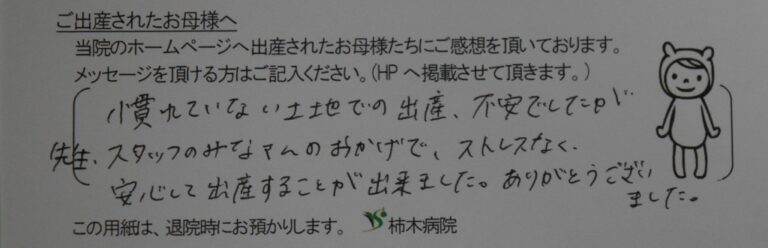 ご出産されたお母様へ
当院のホームページへ出産されたお母様たちにご感想を頂いております。
メッセージを頂ける方はご記入ください。(HPへ掲載させて頂きます。)
慣れていない土地での出産、不安でしたが
先生、スタッフのみなさんのおかげで、ストレスなく、
安心して出産することが出来ました。ありがとうござい
ました。
この用紙は、退院時にお預かりします。 柿木病院